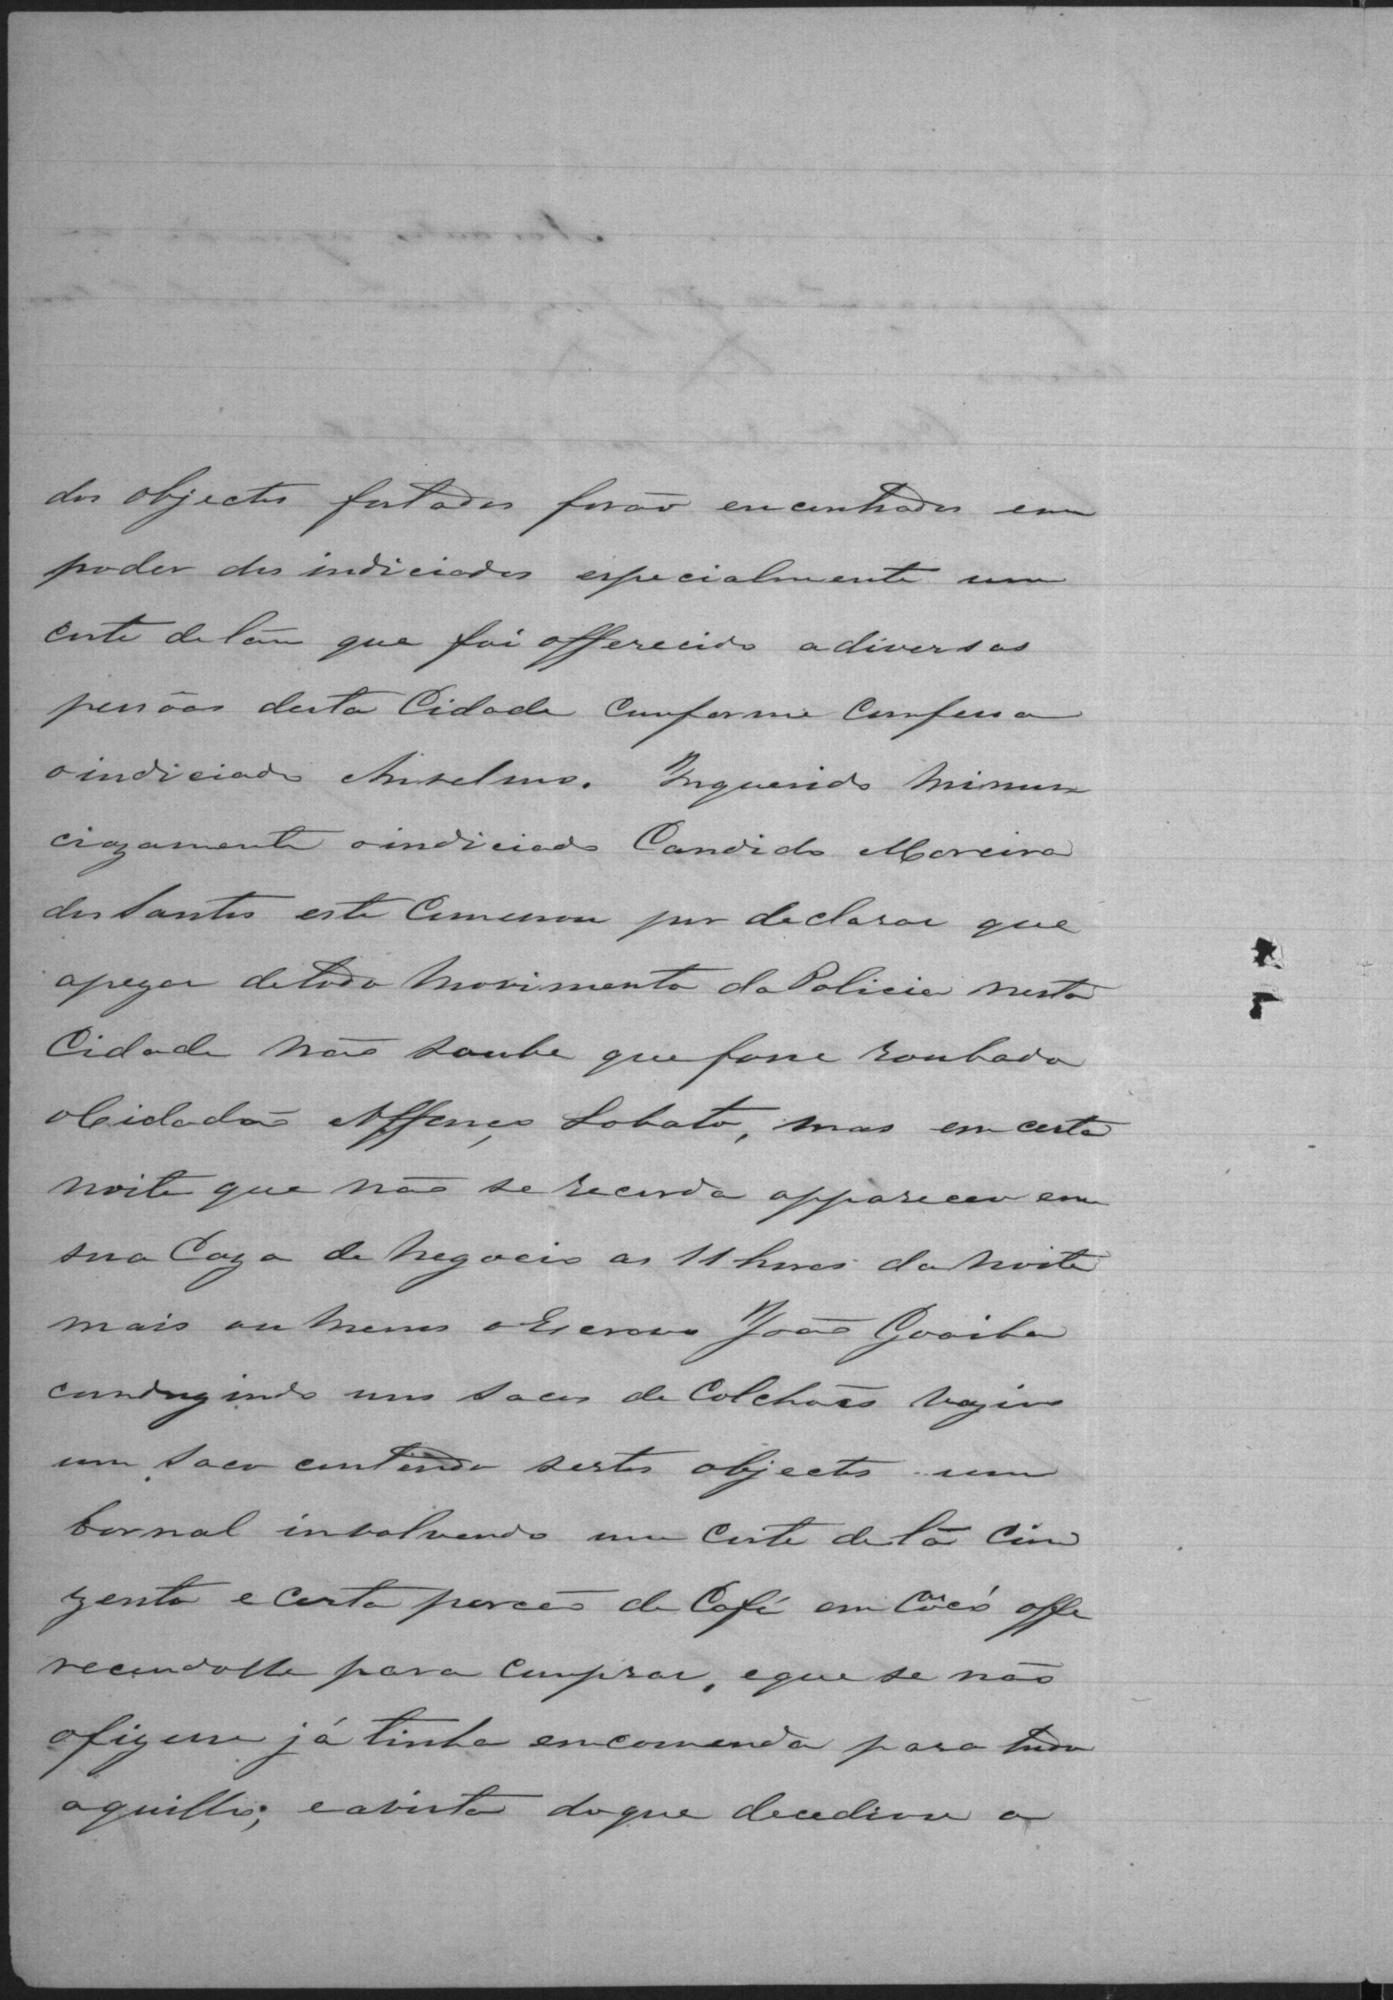 dos objectos furtados forão encontrados em
poder dos indiciados especialmente um
corte de lãn que foi offerecido a diversas
pessôas desta Cidade conforme confessa
o indiciado Anselmo. Inquerido minun
ciozamente o indiciado Candido Moreira
dos Santos este comessou por declarar que
apezar de todo movimento da Policia nesta
Cidade não soube que fosse roubado
o Cidadão Affonço Lobato, mas em certa
noite que não se recorda appareceu em
sua Caza de negocio as 11 horas da noite
mais ou menos o Escravo João Goaiba
conduzindo uns sacos de Colchões vazios
um saco contendo sertos objectos um
bornal involvendo um corte de lã cin
zenta e certa porcão de Café em Côcó offe
recendo-lhe para comprar, e que se não
o fizesse já tinha encomenda para tudo
aquillo; e a vista do que decediu a